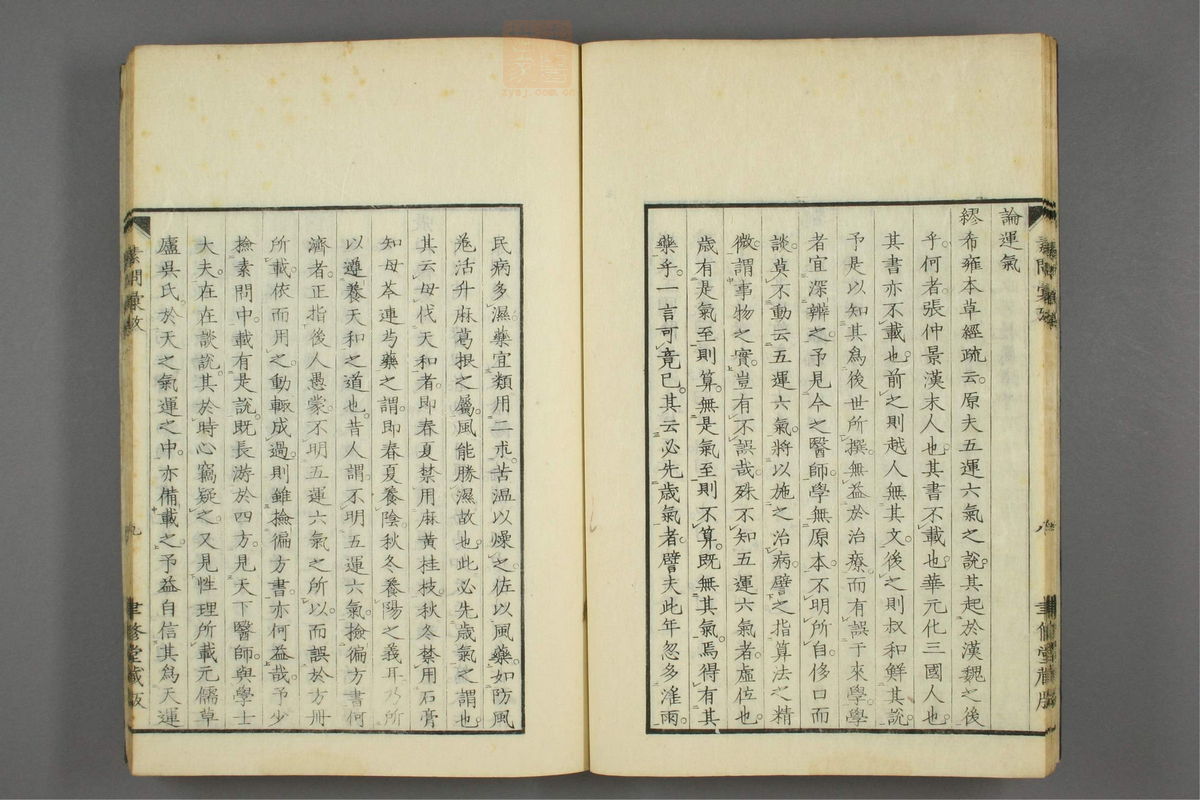 論運氣
繆希雍本草經疏云原夫五運六氣之說其起於漢魏之後
乎何者張仲景漢末人也其書不載也華元化三國人也
其書亦不載也前之則越人無其文後之則叔和鮮其說
予是以知其爲後世所撰無益於治療而有誤于來學學
者宜深辨之予見今之醫師學無原本不明所自侈口而
談莫不動云五運六氣將以施之治病譬之指算法之精
微謂事物之實豈有不誤哉殊不知五運六氣者虛位也
歲有是氣至則算無是氣至則不算既無其氣焉得有其
藥乎一言可竟已其云必先歲氣者譬夫此年忽多淫雨
民病多濕藥宜類用二朮苦温以燥之佐以風藥如防風
羗活升麻葛根之屬風能勝濕故也此必先歲氣之謂也
其云毋伐天和者即春夏禁用麻黃桂枝秋冬禁用石膏
知母芩連芍藥之謂即春夏養陰秋冬養陽之義耳乃所
以遵養天和之道也昔人謂不明五運六氣撿徧方書何
濟者正指後人愚蒙不明五運六氣之所以而誤於方冊
所載依而用之動輒成過則雖撿徧方書亦何益哉予少
撿素問中載有是說既長游於四方見天下醫師與學士
大夫在在談說其於時心竊疑之又見性理所載元儒草
廬吳氏於天之氣運之中亦備載之予益自信其爲天運
素問彙攷
八
聿修堂藏版
素問彙攷
九
聿修堂藏版
zysj.com.cn